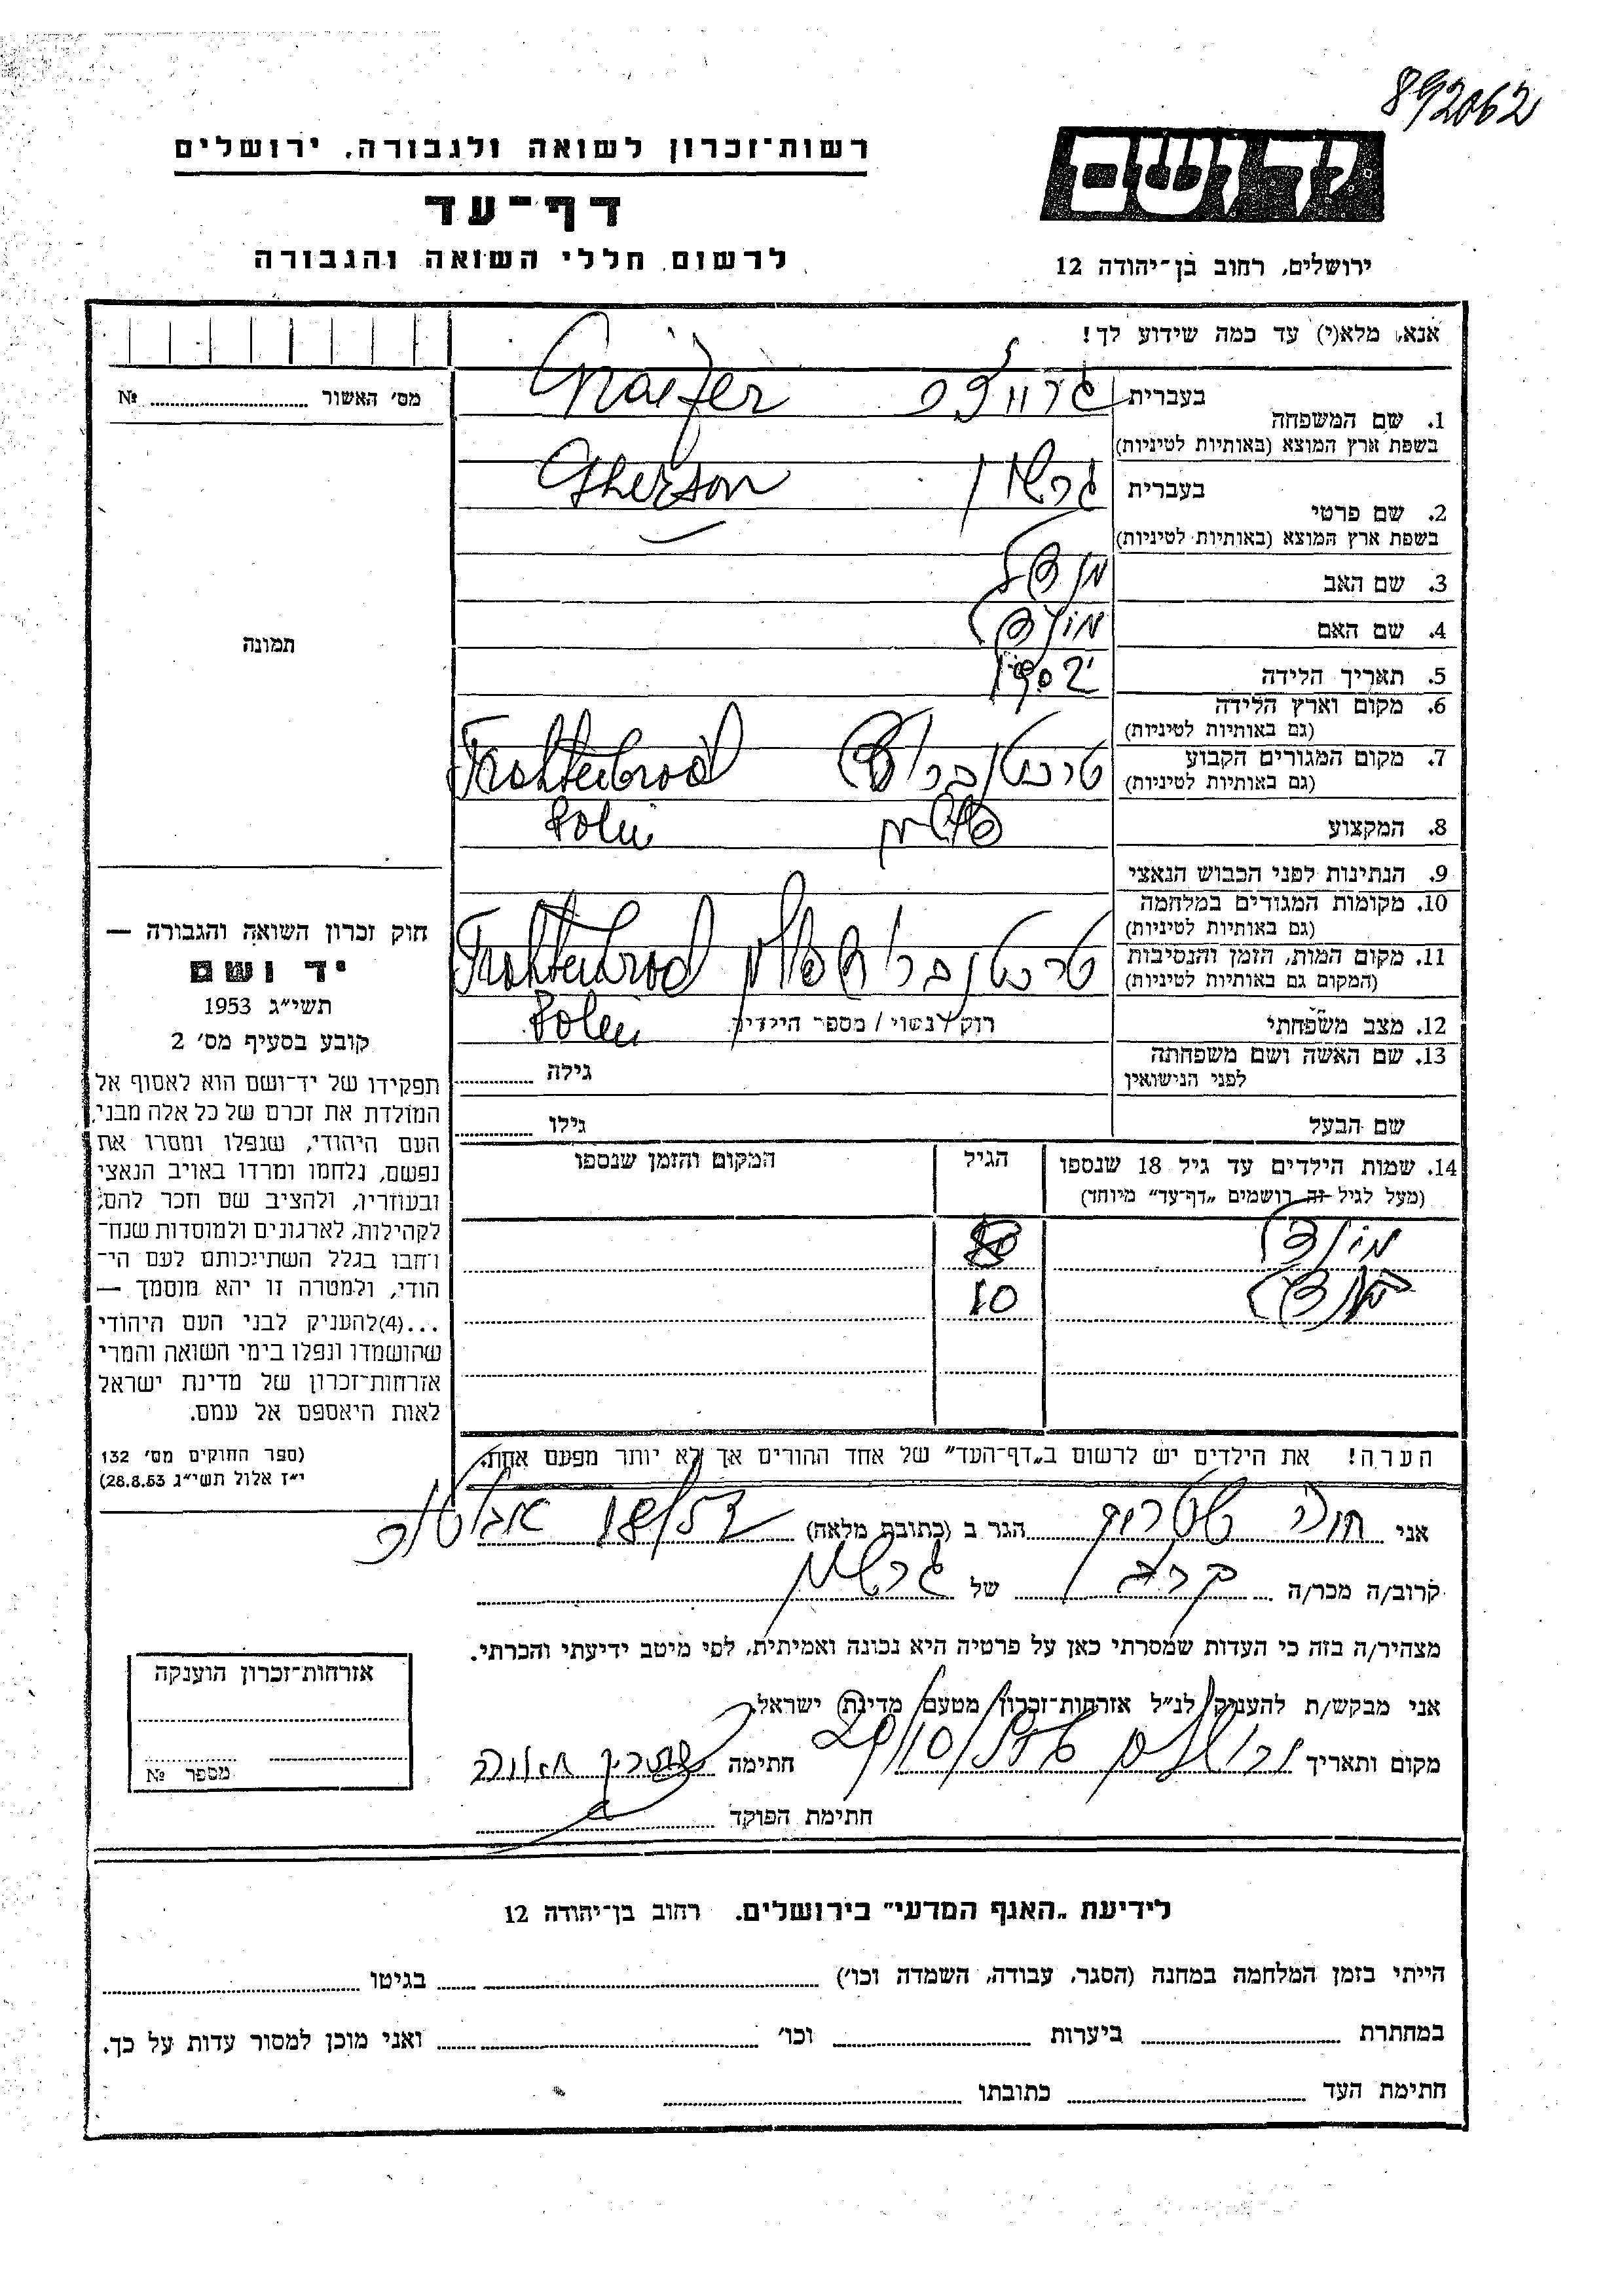 892062
יד ושם
רשות־זכרון לשואה ולגבורה, ירושלים
דף־עד
לרשום חללי השואה והגבורה
ירושלים, רחוב בן־יהודה 12
אנא, מלא(י) עד כמה שידוע לך!
מס׳ האשור № 
1. שם המשפחה
בעברית Graifer
בשפת ארץ המוצא (באותיות לטיניות)
2. שם פרטי
בעברית גרשון Gherson
בשפת ארץ המוצא (באותיות לטיניות)
3. שם האב
4. שם האם
5. תאריך הלידה
6. מקום וארץ הלידה
(גם באותיות לטיניות)
7. מקום המגורים הקבוע Trohtenbrod
(גם באותיות לטיניות)
8. המקצוע פולין Polin
9. הנתינות לפני הכבוש הנאצי
10. מקומות המגורים במלחמה
(גם באותיות לטיניות)
11. מקום המות, הזמן והנסיבות Trohtenbrod
(המקום גם באותיות לטיניות)
12. מצב משפחתי רוק / נשוי / מספר הילדים Polin
13. שם האשה ושם משפחתה גילה
לפני הנישואין
שם הבעל גילו
14. שמות הילדים עד גיל 18 שנספו הגיל המקום והזמן שנספו
(מעל לגיל זה רושמים „דף־עד” מיוחד)
10
הערה! את הילדים יש לרשום ב„דף־העד” של אחד ההורים אך לא יותר מפעם אחת.
תמונה
חוק זכרון השואה והגבורה —
יד ושם
תשי״ג 1953
קובע בסעיף מס׳ 2
תפקידו של יד־ושם הוא לאסוף אל
המולדת את זכרם של כל אלה מבני
העם היהודי, שנפלו ומסרו את
נפשם, נלחמו ומרדו באויב הנאצי
ובעוזריו, ולהציב שם וזכר להם,
לקהילות, לארגונים ולמוסדות שנח־
רבו בגלל השתייכותם לעם הי־
הודי, ולמטרה זו יהא מוסמך —
...(4)להעניק לבני העם היהודי
שהושמדו ונפלו בימי השואה והמרי
אזרחות־זכרון של מדינת ישראל
לאות היאספם אל עמם.
(ספר החוקים מס׳ 132
י״ז אלול תשי״ג 28.8.53)
אני הגר ב (כתובת מלאה) 18/52
קרוב/ה מכר/ה של גרשון
מצהיר/ה בזה כי העדות שמסרתי כאן על פרטיה היא נכונה ואמיתית, לפי מיטב ידיעתי והכרתי.
אני מבקש/ת להעניק לנ״ל אזרחות־זכרון מטעם מדינת ישראל.
מקום ותאריך חתימה
חתימת הפוקד
אזרחות־זכרון הוענקה
מספר №
לידיעת „האגף המדעי” בירושלים. רחוב בן־יהודה 12
הייתי בזמן המלחמה במחנה (הסגר, עבודה, השמדה וכו׳) בגיטו
במחתרת ביערות וכו׳ ואני מוכן למסור עדות על כך.
חתימת העד כתובתו